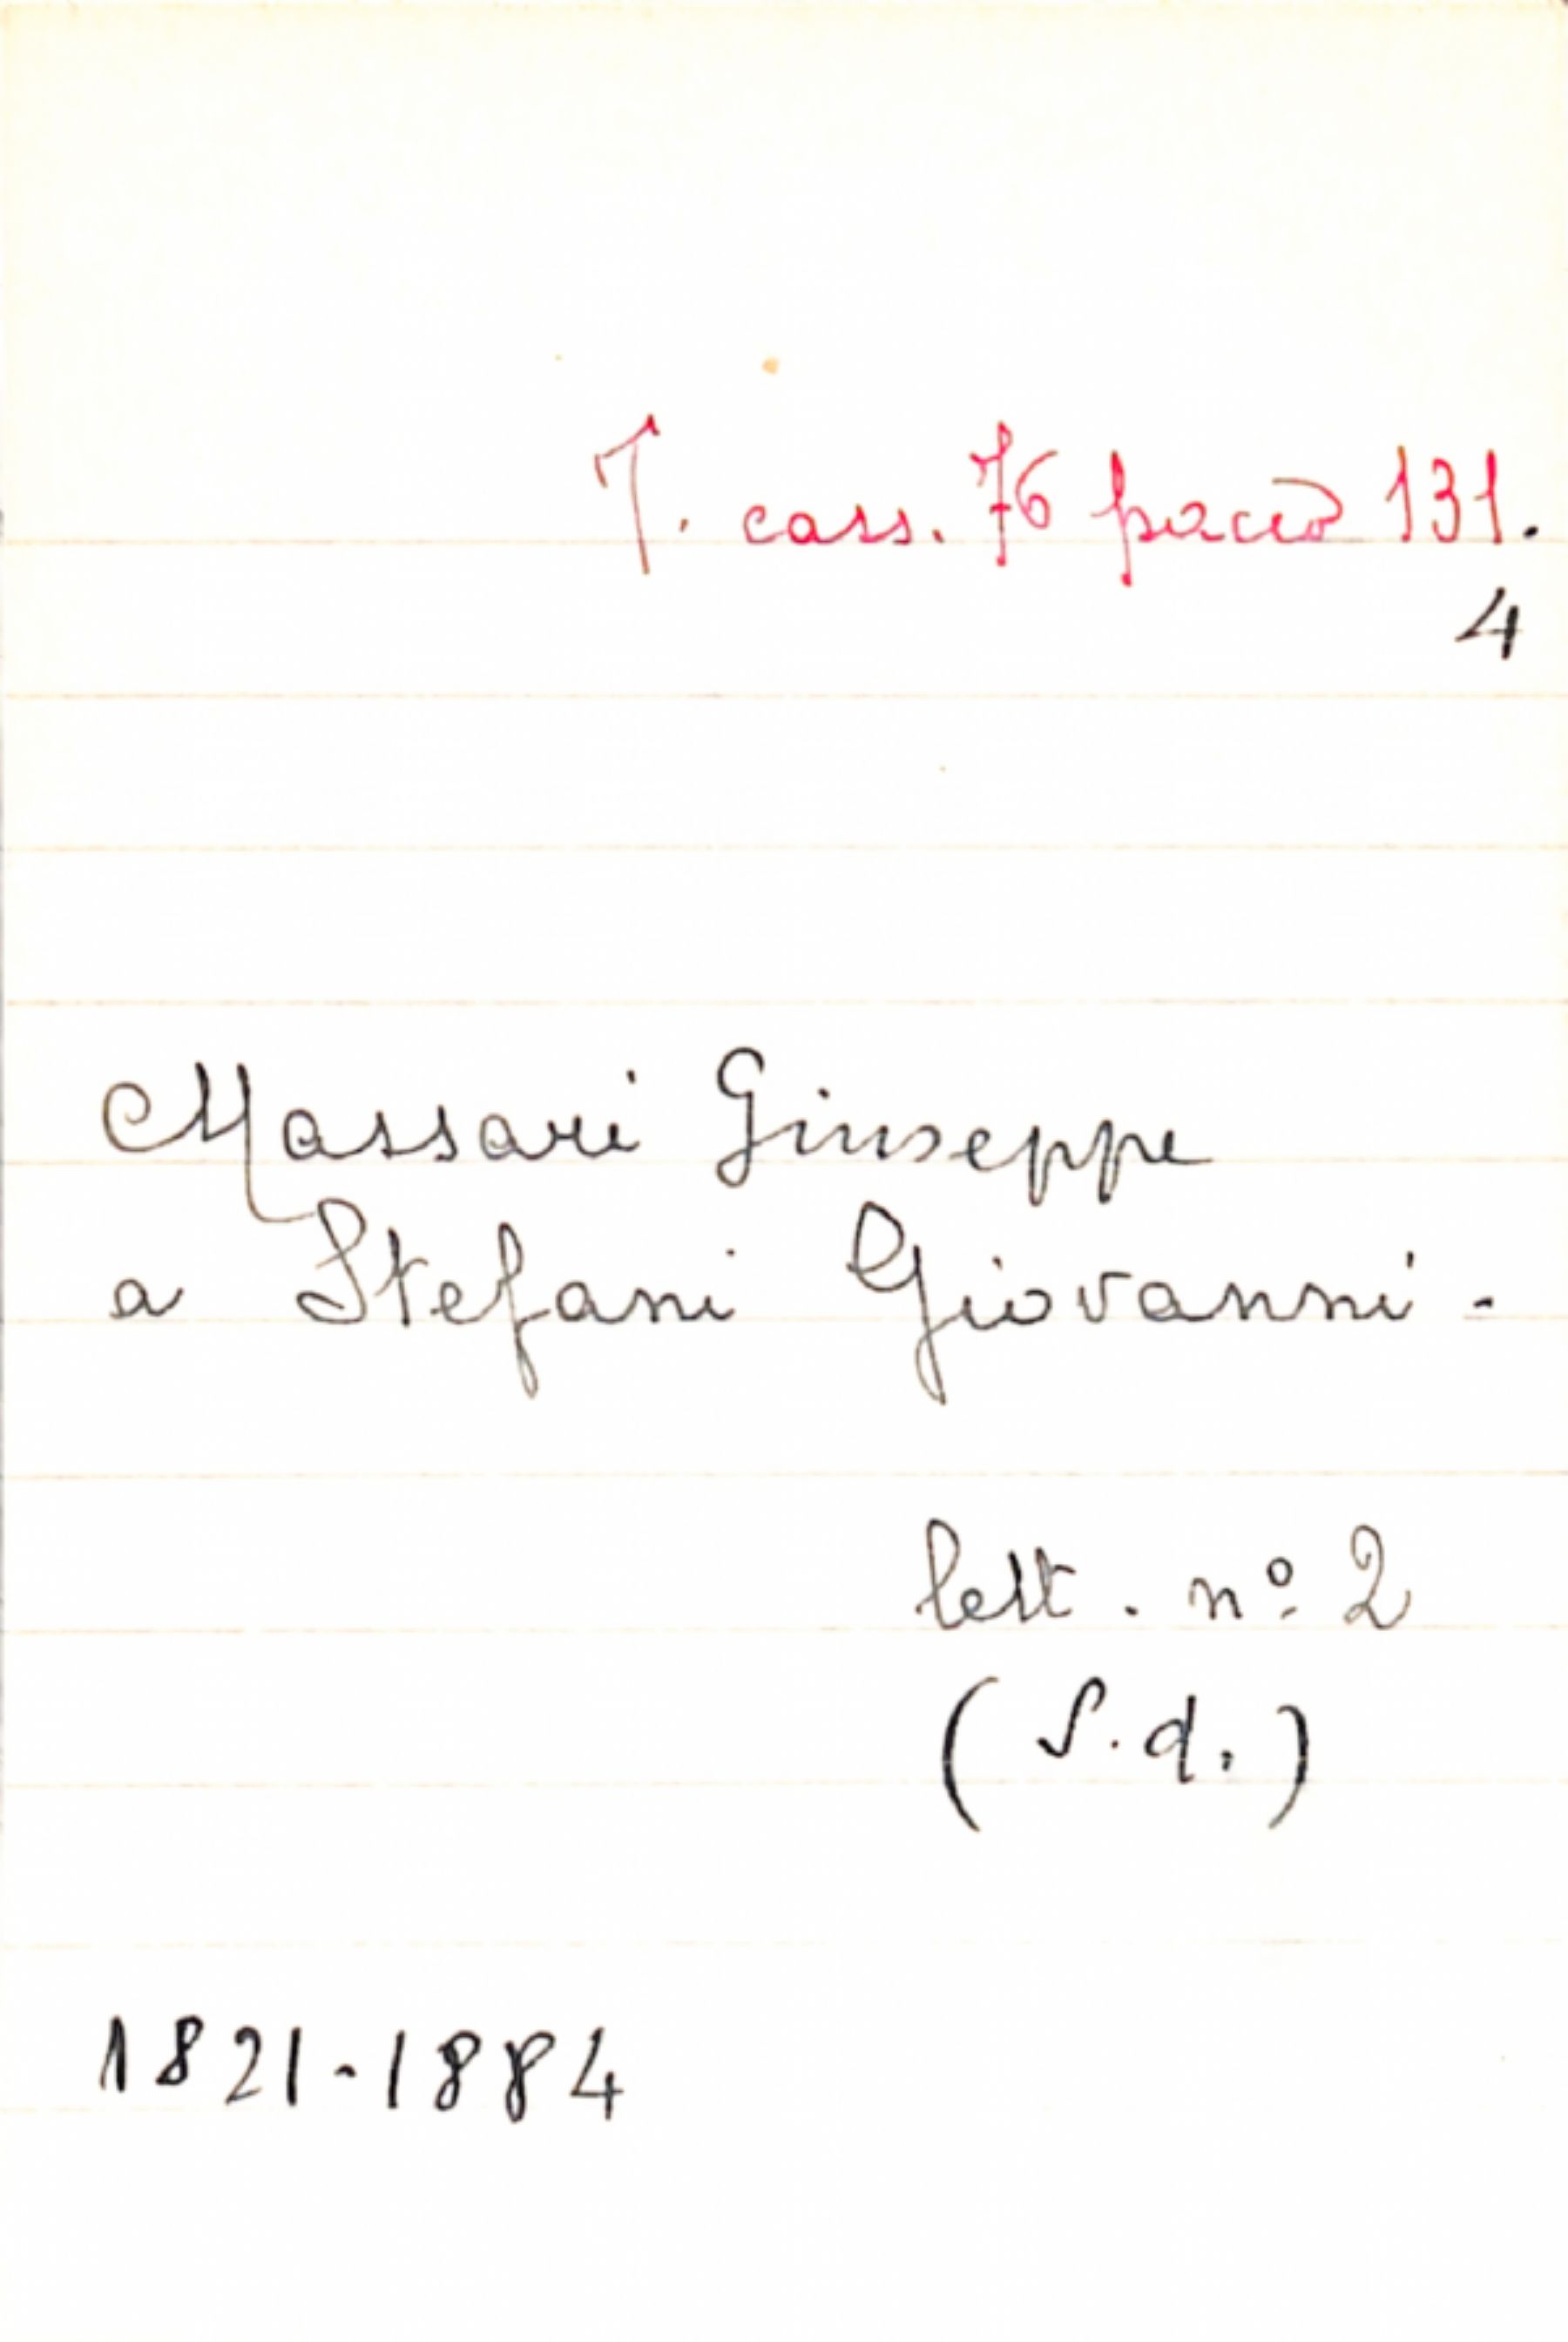 T. cass. 76 pacco 131.
4
Massari Giuseppe
a Stefani Giovanni.
lett. nº 2
(S.d.)
1821-1884